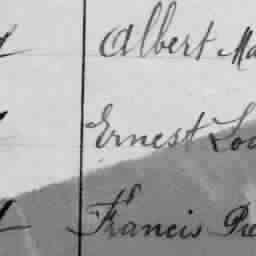 Albert Ma
Ernest Lo
Francis Pr